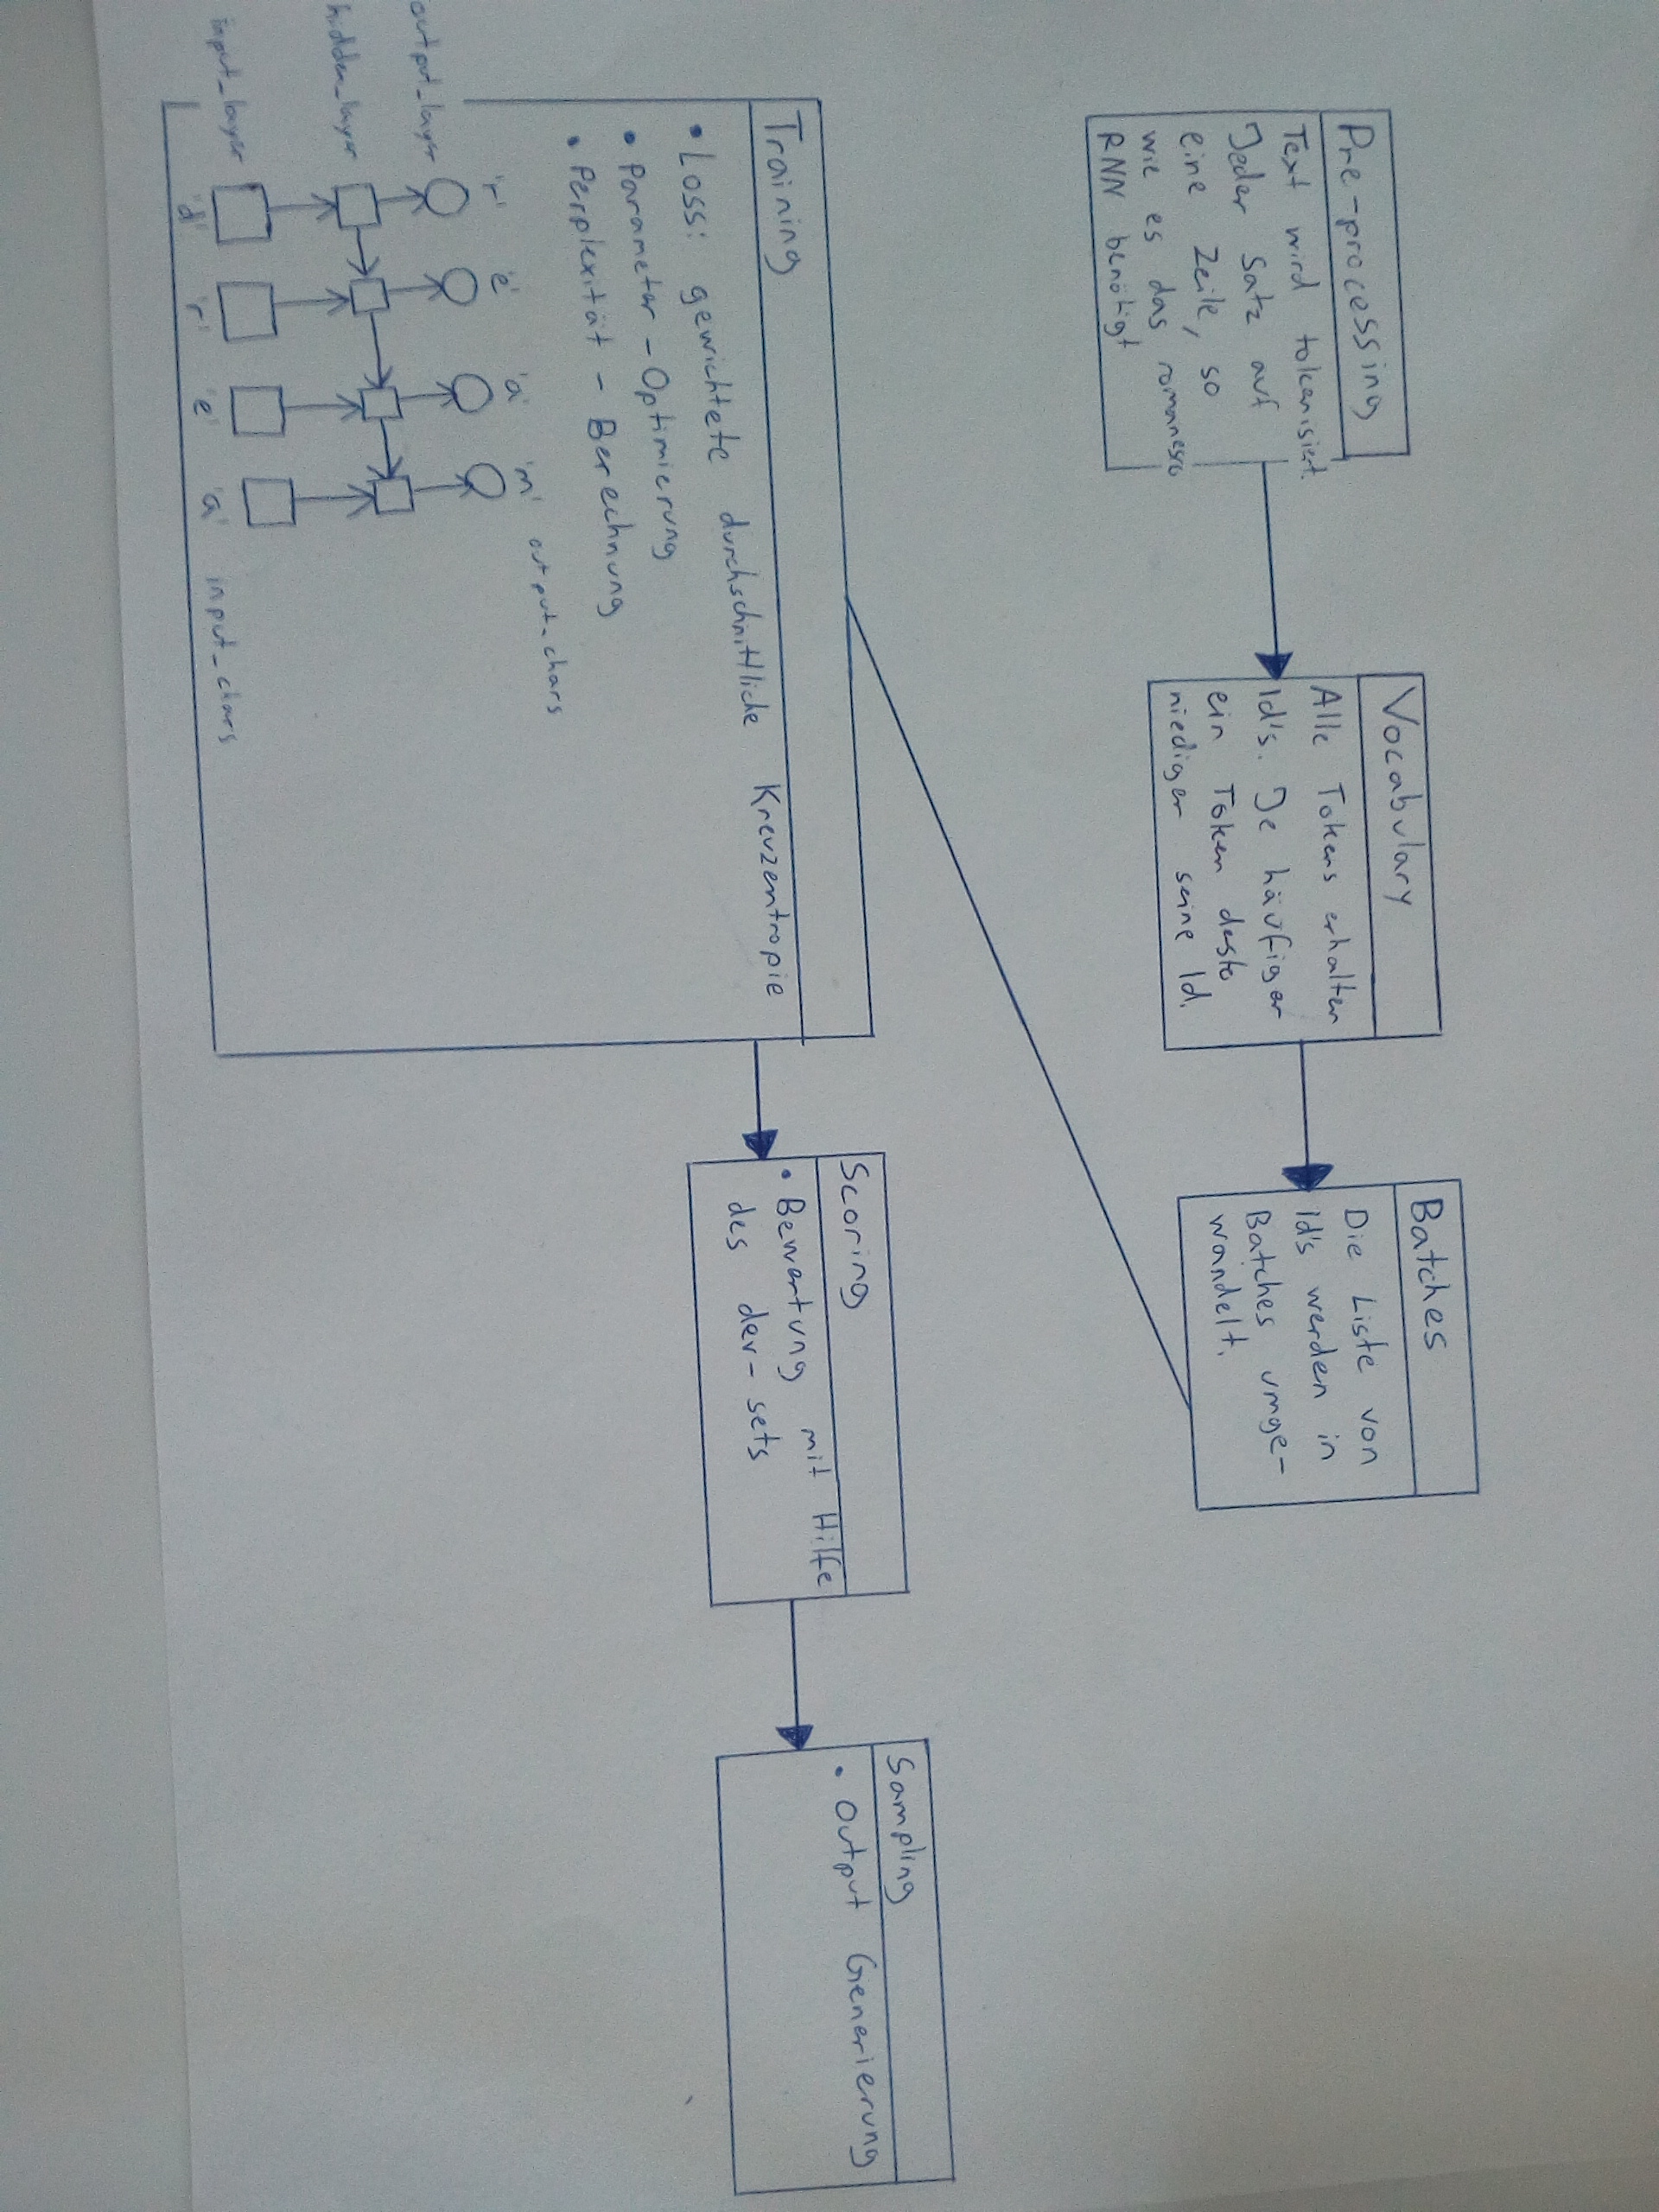 Pre-processing
Text wird tokenisiert.
Jeder Satz auf
eine Zeile, so
wie es das romanesco
RNN benötigt
Vocabulary
Alle Tokens erhalten
Id's. Je häufiger
ein Token desto
niediger seine Id.
Batches
Die Liste von
Id's werden in
Batches umge-
wandelt.
Training
• Loss: gewichtete durchschnittliche Kreuzentropie
• Parameter - Optimierung
• Perplexität - Berechnung
'r' 'e' 'a' 'm' output_chars
output_layer
hidden_layer
input_layer
'd' 'r' 'e' 'a' input_chars
Scoring
• Bewertung mit Hilfe
des dev-sets
Sampling
• Output Generierung